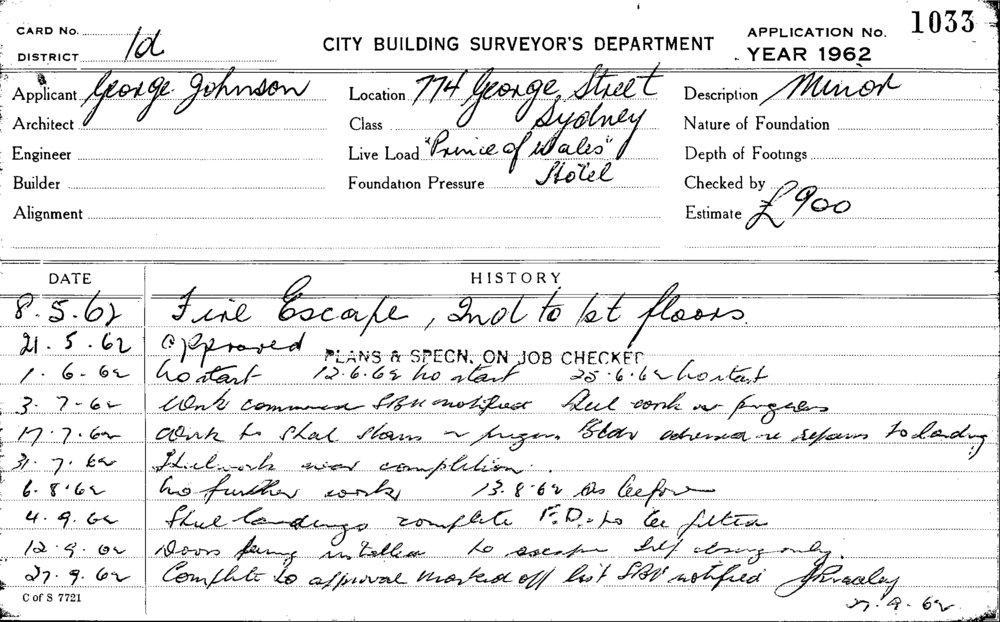 CARD No.
DISTRICT 1d
CITY BUILDING SURVEYOR'S DEPARTMENT
APPLICATION No. 1033
YEAR 1962
Applicant George Johnson
Location 774 George Street
Description Minor
Architect
Class Sydney
Nature of Foundation
Engineer
Live Load "Prince of Wales"
Depth of Footings
Builder
Foundation Pressure Hotel
Checked by
Alignment
Estimate £900
DATE HISTORY
8.5.62 Fire Escape, 2nd to 1st floors.
21.5.62 approved
PLANS & SPECN. ON JOB CHECKED
1.6.62 No start 12.6.62 No start 25.6.62 No start
3.7.62 Work commenced SBN notified Steel work in progress
17.7.62 Work to steel stairs in progress Bldr re repairs to landing
31.7.62 Steelwork near completion.
6.8.62 No further work 13.8.62 As before
4.9.62 Steel landings complete F.D. to be fitted
12.9.62 Doors being installed to escape self closing only.
27.9.62 Complete to approval marked off list SBN notified
C of S 7721
27.9.62